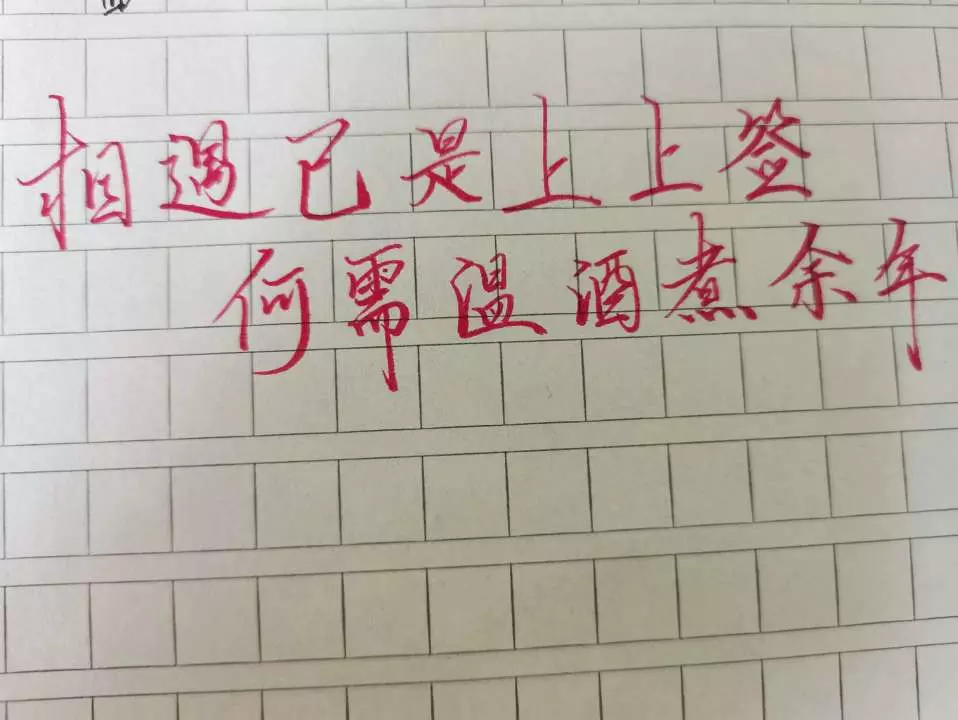 相遇已是上上签
何需温酒煮余年